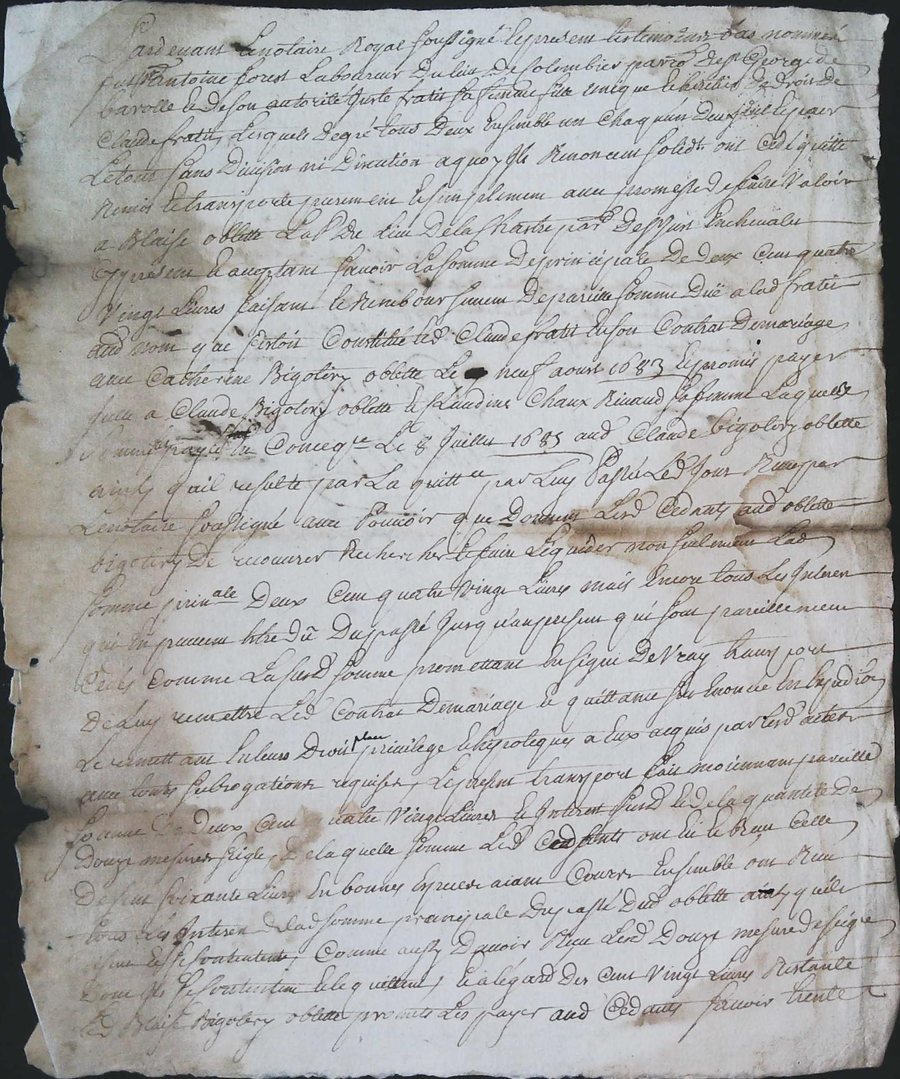 Pardevant Le notaire Royal soussigné & present les tesmoins bas nommés
fust Antoine forest Laboureur du lieu de Colombier parr. de St George de
barolle & de son autorite Juste fratif sa femme fille unique & heritiere de Droit de
Claude fratif, Lesquels de gré tous deux Ensemble un chaquun deux seul &
Le tout sans Division ni Dixution a quoy Ils Renoncent solidt ont cedé quitté
Remis & transporté purement & simplement avec promesse de faire Valoir
a Blaise oblette Lab. du Lieu de la Chartre parr. de
present & aceptant scavoir La somme de principale De deux Cent quatre
Vingt Livres faisant le Rembourssement de pareille somme Düe a lad fratif
aud nom que sestoit Constitué led Claude fratif En son Contrat De mariage
avec Catherine Bigolery oblette Le neuf aoust 1683 & promis payer
a Claude Bigolery oblette & Claudine Chaux Rinaud sa femme Laquelle
somme payée En Conceqce Le 8 Juillet 1685 aud Claude bigolery oblette
ainsy quil resulte par La quittce par Luy Passé Led Jour Reçue par
Le notaire soussigné avec pouvoir que Donnent Lesd Cedants aud oblette
bigolery De recouvrer Rechercher & faire Liquider non seulement Lad
somme prinale Deux Cent quatre Vingt Livres mais Encore tous Les Interest
qui En peuvent Etre dû Du passé Jusqu'au present qui sont pareillement
Cedés Comme La susd somme promettant En signe De Vray transport
De Luy remettre Led Contrat De mariage & quittance sus Enoncée
Le remettant En leurs Droits place privilege & hipoteques a Eux acquis par lesd actes
avec toutes subrogations requises, Le present transport fait moiennant pareille
somme De deux Cent quatre Vingt Livres & Interest susd & de la quantité de
Douze mesures seigle, De laquelle somme Lesd Cedants ont Eu & Reçu Celle
De Cent soixante Livres En bonnes Especes aiant Cours Ensemble ont Reçu
tous Les Interest De lad somme principale Du passé Dud oblette ainsy quils
Comme aussy Davoir Reçu Lesd Douze mesure de seigle
Dont Ils se Contentent & le quittent, & a légard des Cent Vingt Livres Restante
Led Blaise Bigolery oblette promets Les payer aud Cedants scavoir trente